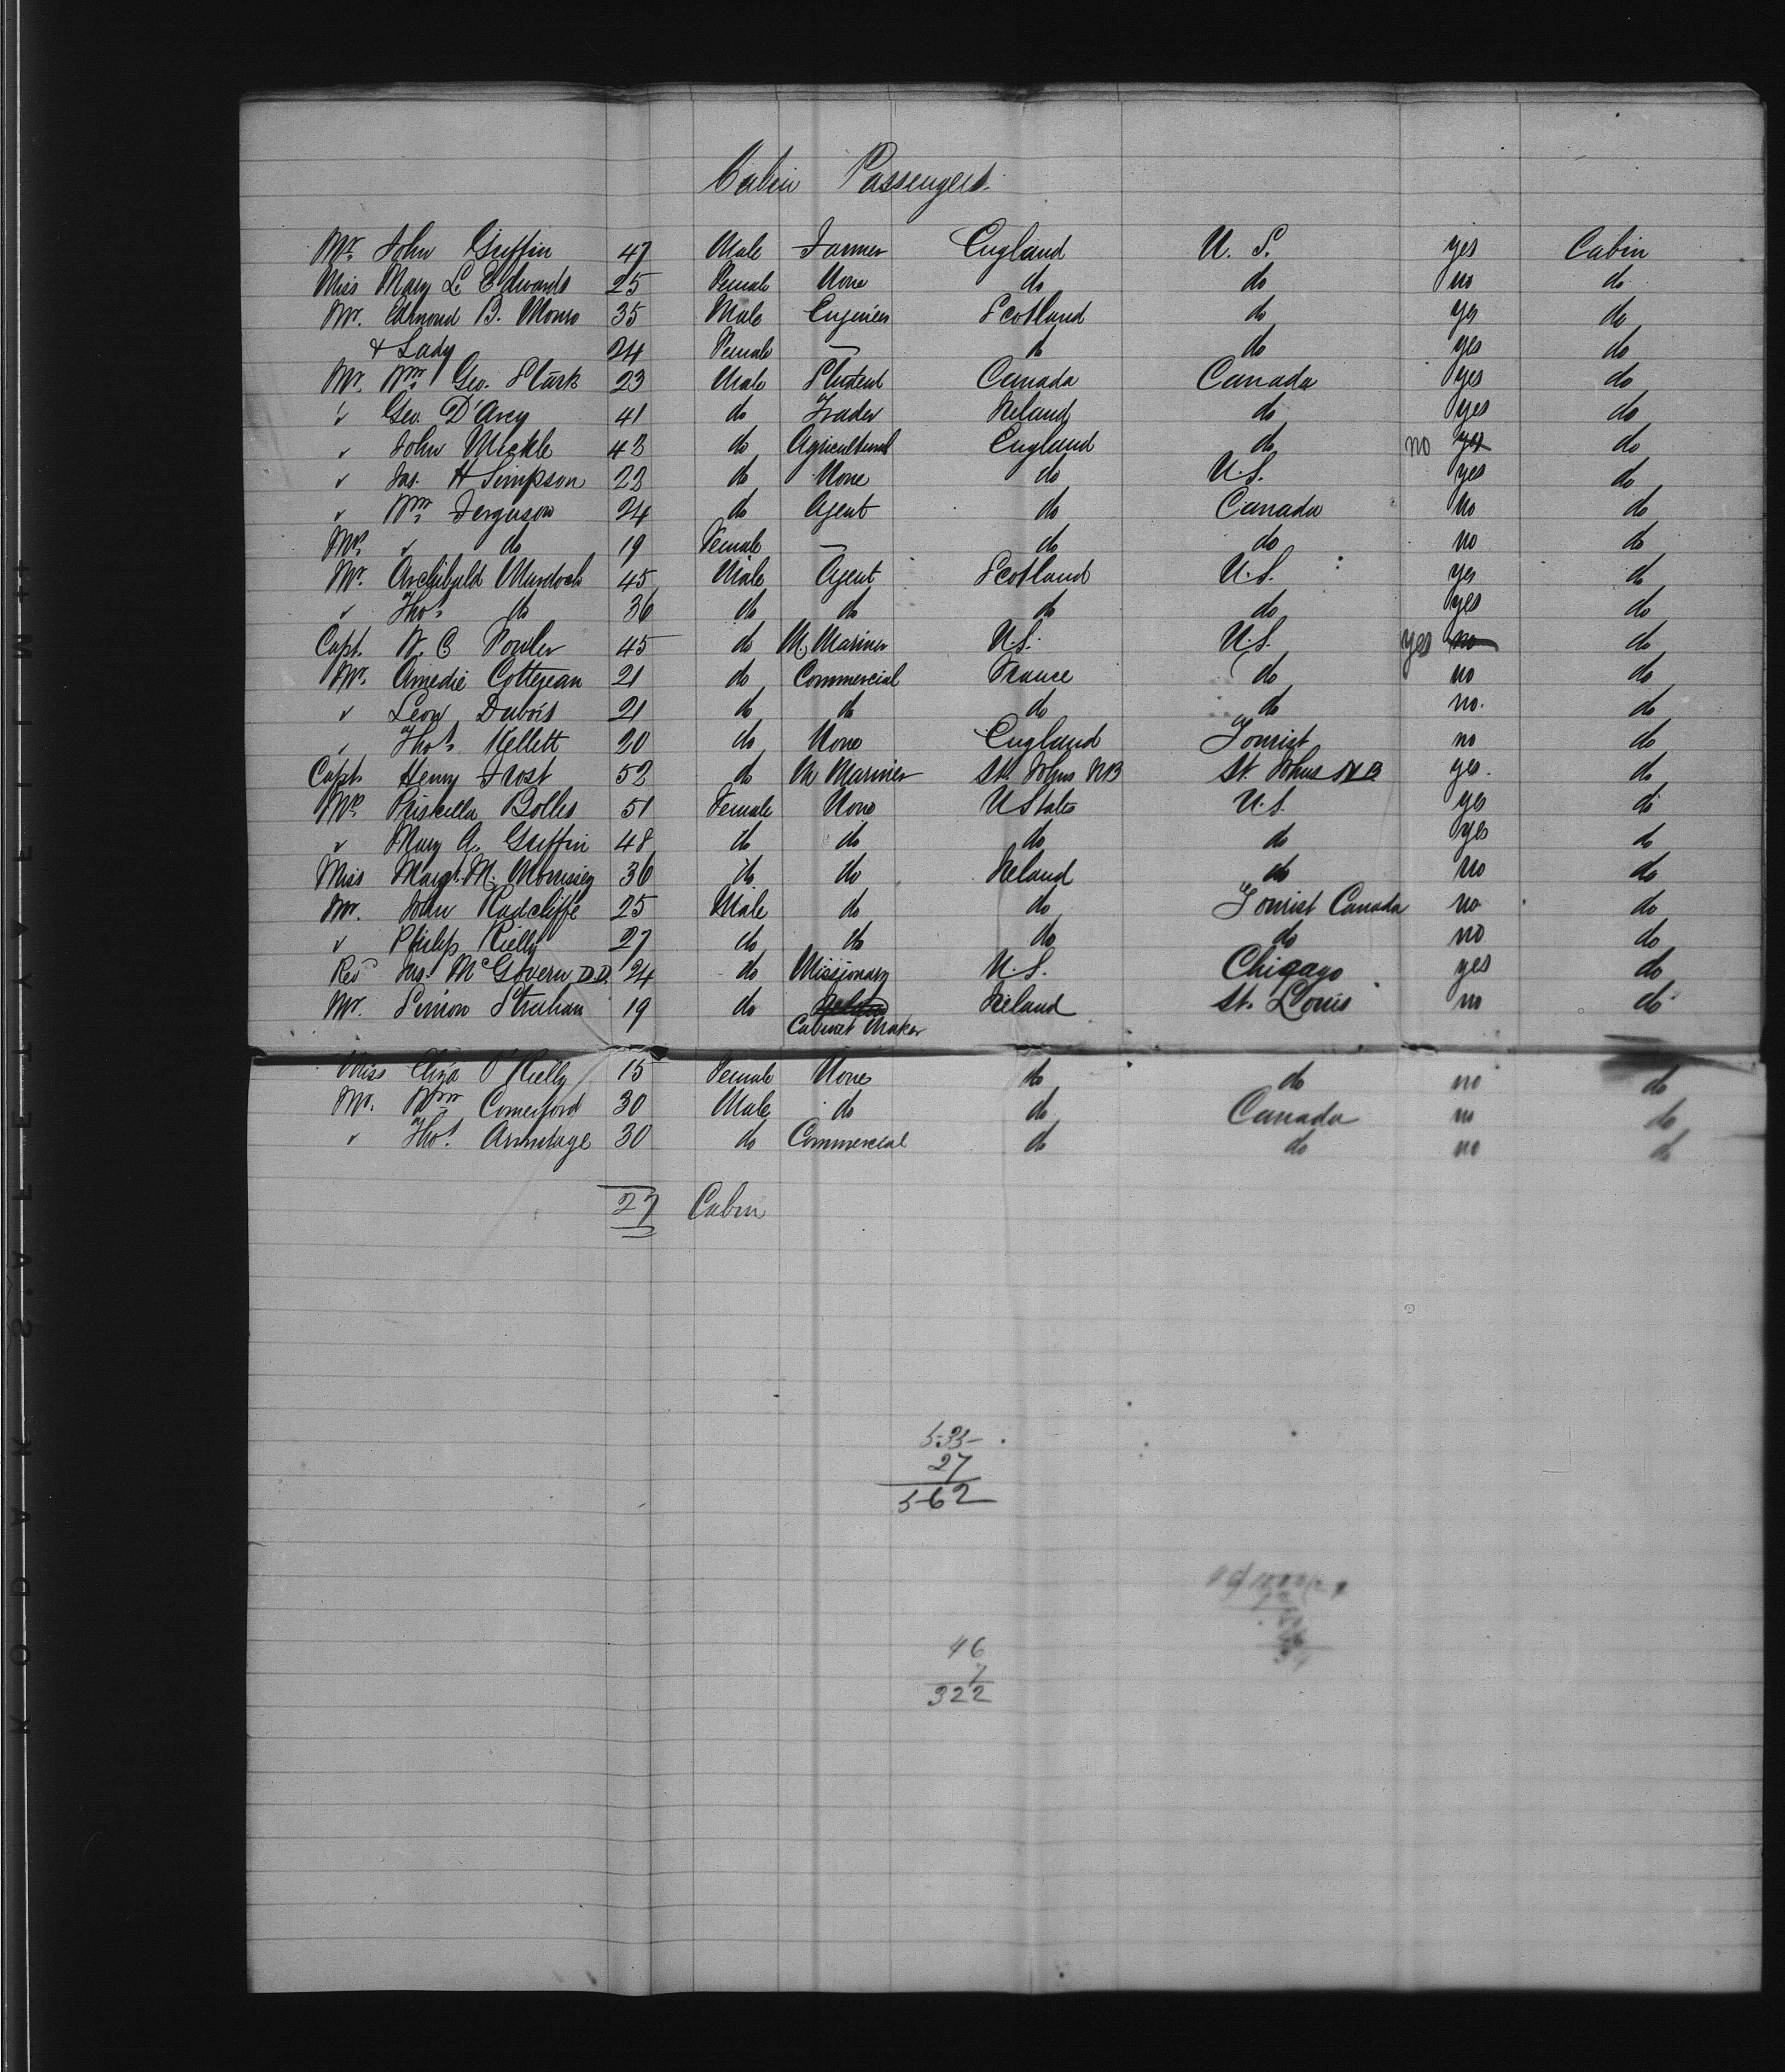 Cabin Passengers
Mr. John Griffin 47 Male Farmer England U. S. yes Cabin
Miss Mary L Edwards 25 Female None do do no do
Mr. Edmond B. Monro 35 Male Engineer Scotland do yes do
& Lady 24 Female — do do yes do
Mr. Wm Geo. Stark 23 Male Student Canada Canada yes do
" Geo. D'Arcy 41 do Trader Ireland do yes do
" John Mickle 43 do Agricultural England do no yes do
" Jas. H Simpson 22 do None do U.S. yes do
" Wm Ferguson 24 do Agent do Canada no do
Mrs. " do 19 Female — do do no do
Mr. Archibald Murdoch 45 Male Agent Scotland U.S. yes do
" Thos. do 36 do do do do yes do
Capt. W. C Fowler 45 do M. Mariner U.S. U.S. yes no do
Mr. Amedie Gottejean 21 do Commercial France do no do
" Leon Dubois 21 do do do do no. do
" Thos. Kellett 20 do None England Tourist no do
Capt. Henry Frost 52 do M Mariner St. Johns NB St. Johns NB yes. do
Mrs. Priskella Bolles 51 Female None U States U.S. yes do
" Mary A. Griffin 48 do do do do yes do
Miss Margt. M. Morrissey 36 do do Ireland do no do
Mr. John Radcliffe 25 Male do do Tourist Canada no do
" Philip Rielly 27 do do do do no do
Revd Jas. McGovern D.D. 24 do Missionary U.S. Chicago yes do
Mr. Simon Strahan 19 do Ireland St. Louis no do
Cabinet Maker
Miss Eliza O'Rielly 15 Female None do do no do
Mr. Wm Comerford 30 Male do do Canada no do
" Thos. Armitage 30 do Commercial do do no do
27 Cabin
535
27
562
46
7
322